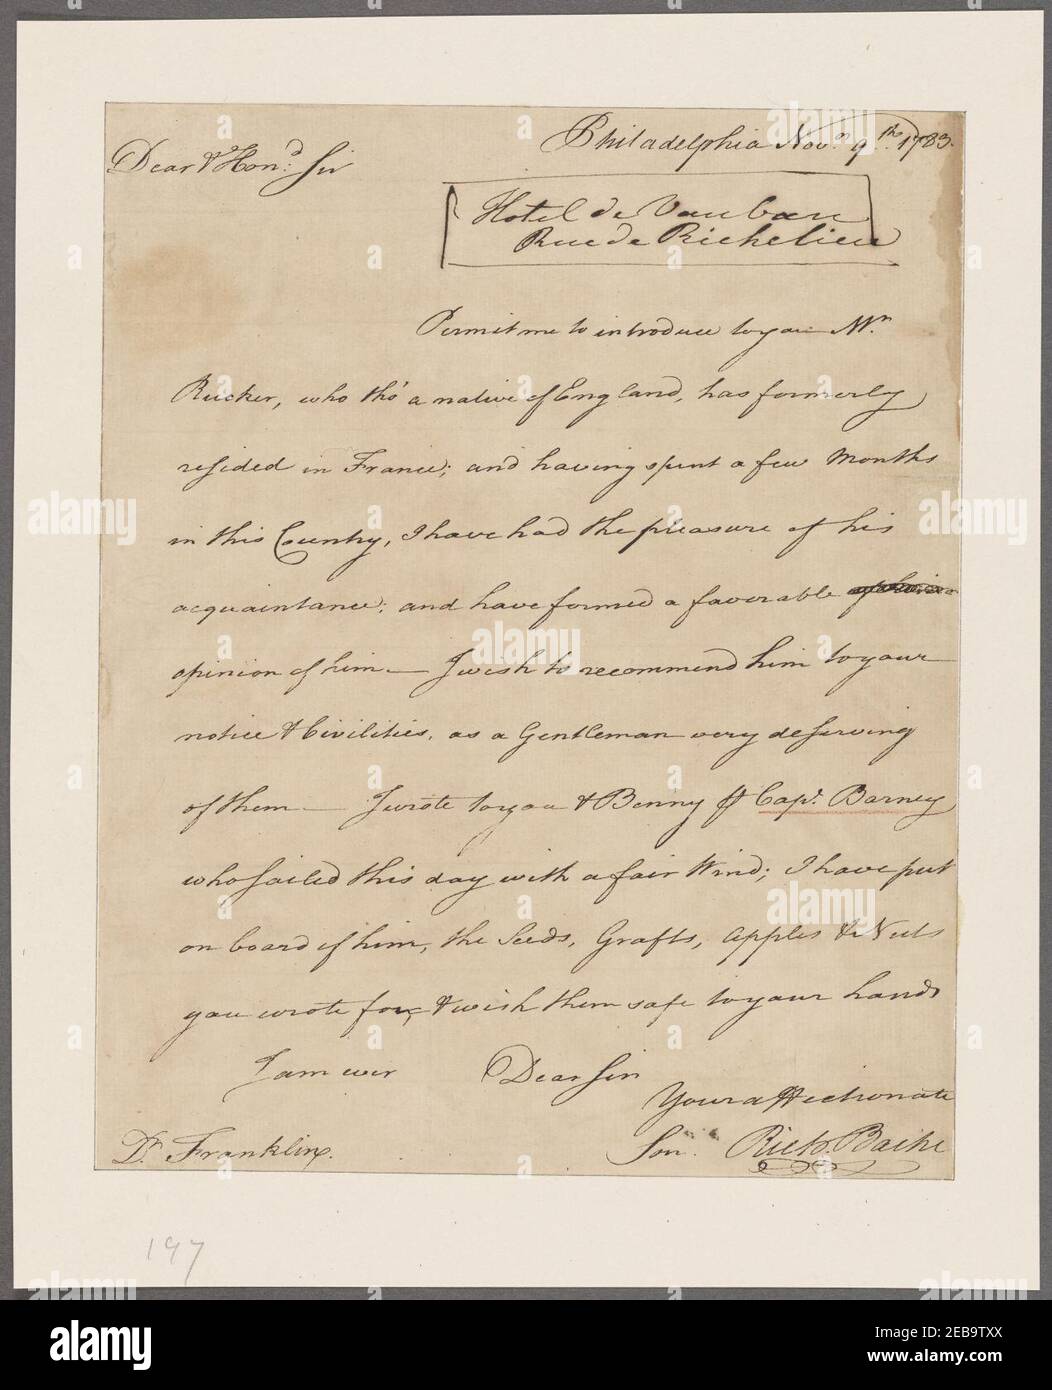 Philadelphia Nov.r 9th. 1783.
Dear & Hon:d Sir
Hotel de Vauban
Rue de Richelieu
Permit me to introduce to you Mr.
Rucker, who tho' a native of England, has formerly
resided in France; and having spent a few Months
in this Country, I have had the pleasure of his
acquaintance; and have formed a favorable
opinion of him — I wish to recommend him to your
notice & Civilities, as a Gentleman very deserving
of them — I wrote to you & Benny Capt. Barney
who sailed this day with a fair Wind; I have put
on board of him, the Seeds, Grafts, Apples & Nuts
you wrote for, & wish them safe to your hands
I am ever Dear Sir
Your affectionate
Son Rich. Bache
Dr. Franklin.
197
alamy
alamy
Image ID: 2EB9TXX
www.alamy.com